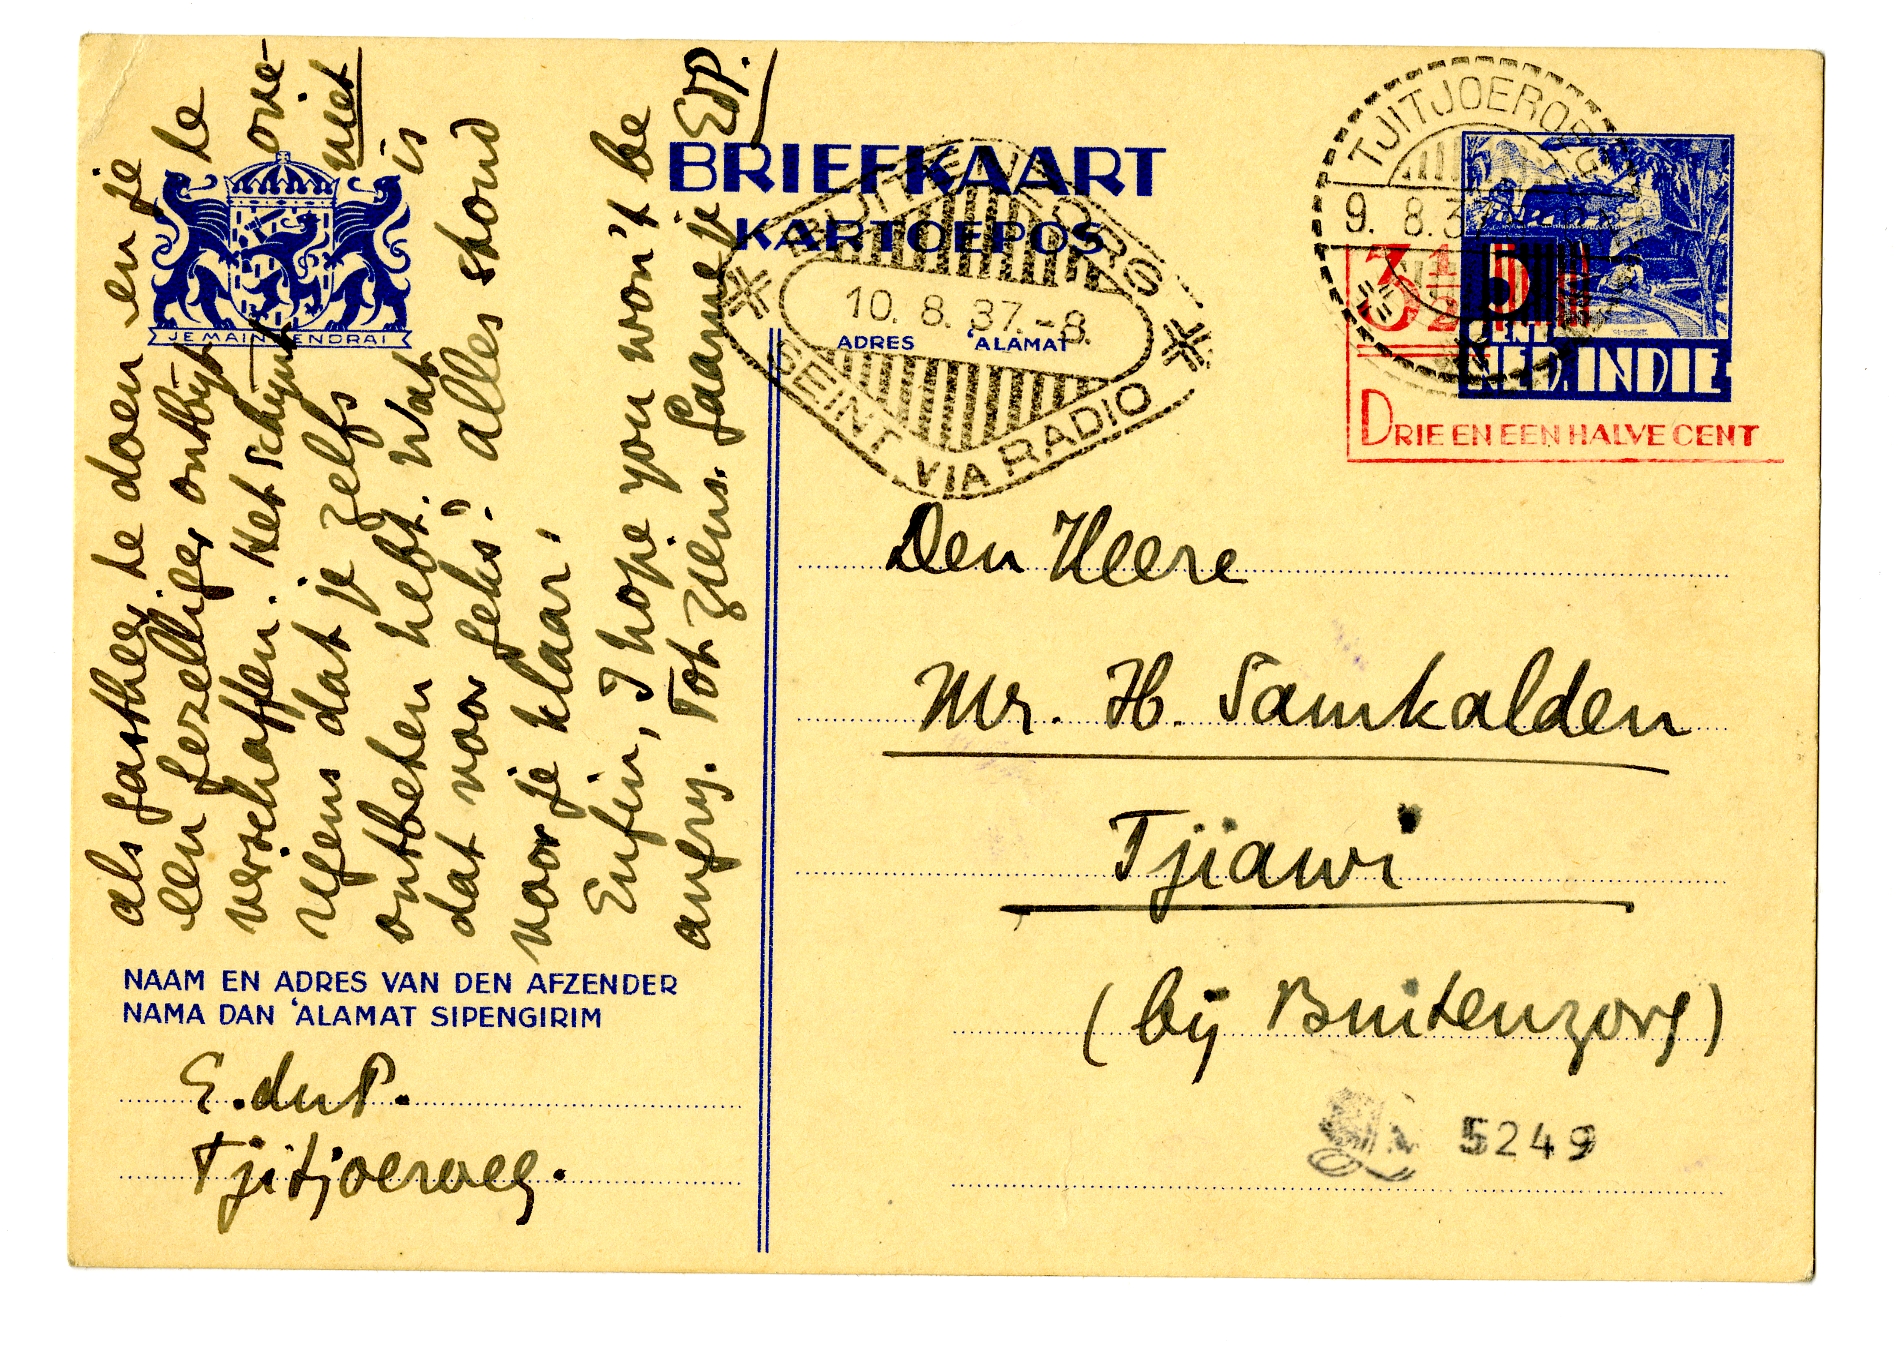 als gastheer te doen en je
een gezelliger ontbijt te
verschaffen. Het schijnt ove-
rigens dat je zelfs niet
ontbeten hebt. Wat is
dat voor geks? alles stond
voor je klaar!
Enfin, I hope you won't be
angry. Tot ziens. Saame je EdP.
JE MAINTIENDRAI
NAAM EN ADRES VAN DEN AFZENDER
NAMA DAN 'ALAMAT SIPENGIRIM
E. du P.
Tjitjoeroeg.
BRIEFKAART
KARTOEPOS
BUITENZORG
10. 8. 37.-8.
SEINT VIA RADIO
ADRES 'ALAMAT
TJITJOEROEG
9. 8. 37
3 1/2
5
CENT
NED. INDIE
DRIE EN EEN HALVE CENT
Den Heere
Mr. H. Samkalden
Tjiawi
(bij Buitenzorg)
5249